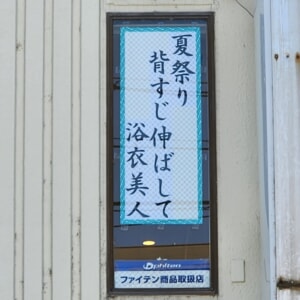 夏祭り
背すじ伸ばして
浴衣美人
phiten
ファイテン商品取扱店